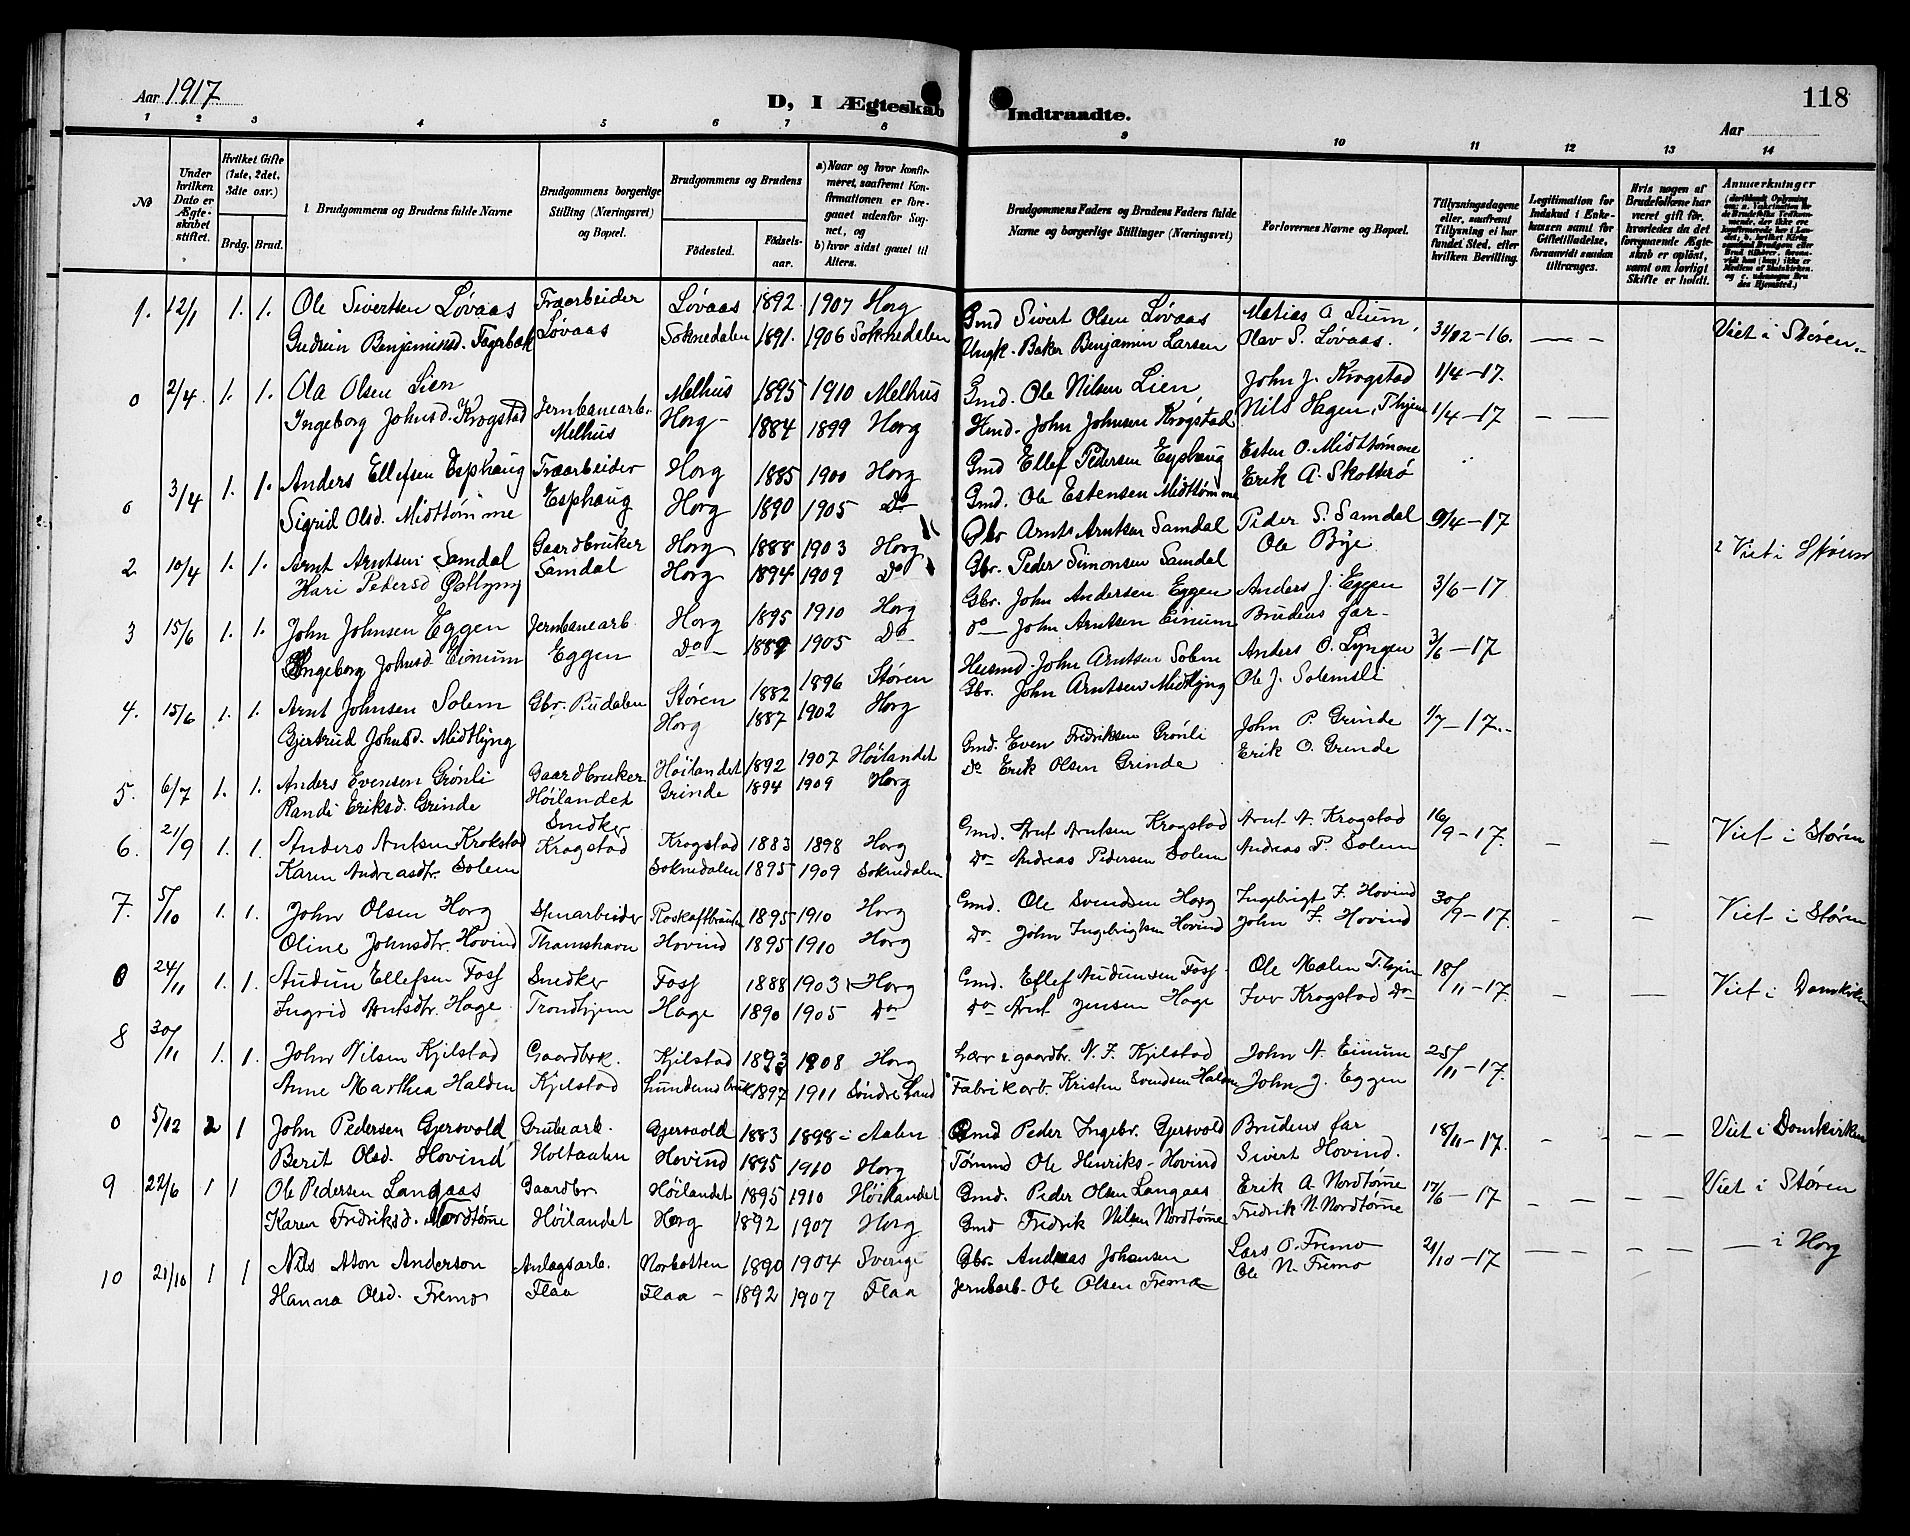 Aar 1917
D, I Ægteskab Indtraadte.
118
Aar
1 2 3 4 5 6 7 8 9 10 11 12 13 14
No
Under hvilken Dato er Ægteskabet stiftet.
Hvilket Gifte (1ste, 2det, 3die osv.)
Brdg. Brud.
Brudgommens og Brudens fulde Navne
Brudgommens borgerlige Stilling (Næringsvei) og Bopæl.
Brudgommens og Brudens
Fødested. Fødselsaar.
a) Naar og hvor konfirmeret, saafremt Konfirmationen er foregaaet udenfor Sognet, og
b) hvor sidst gaaet til Alters.
Brudgommens Faders og Brudens Faders fulde Navne og borgerlige Stillinger (Næringsvei)
Forlovernes Navne og Bopæl.
Tillysningsdagene eller, saafremt Tillysning ei har fundet Sted, efter hvilken Bevilling.
Legitimation for Indskud i Enkekassen samt for Giftetilladelse, forsaavidt saadan tiltrænges.
Hvis nogen af Brudefolkene har været gift før, hvorledes da det foregaaende Ægteskab er opløst, samt om lovligt Skifte er holdt.
Anmærkninger
1. 12/1 1. 1. Ole Sivertsen Løvaas Træarbeider Løvaas 1892 1907 Horg Gmd Sivert Olsen Løvaas Matias O Lium, 31/12-16. Viet i Støren.
Gudrun Benjaminsd. Fagerbak Løvaas Soknedalen 1891. 1906 Soknedalen Ungk. Baker Benjamin Larsen Olav S. Løvaas.
0 2/4 1. 1. Ola Olsen Lien Jernbanearb. Melhus 1895 1910 Melhus Gmd. Ole Nilsen Lien, John J. Krogstad 1/4-17.
Ingeborg Johnsd. Krogstad Melhus Horg 1884 1899 Horg Hmd. John Johnsen Krogstad Nils Hagen, Thjem 1/4-17
0 3/4 1. 1. Anders Ellefsen Esphaug Træarbeider Horg 1885 1900 Horg Gmd Ellef Pedersen Esphaug Esten O. Midttømme
Sigrid Olsd. Midttømme Esphaug Horg 1890 1905 Do Gmd. Ole Estensen Midttømme Erik A. Skotterø
2 10/4 1. 1. Arnt Arntsen Samdal Gaardbruker Horg 1888 1903 Horg Arnt Arntsen Samdal Peder S. Samdal 9/4-17 Viet i Støren
Kari Pedersd Samdal Horg 1894 1909 Do Gbr. Peder Simonsen Samdal Ole Bye
3 15/6 1. 1. John Johnsen Eggen Jernbanearb. Horg 1895 1910 Horg Gbr. John Andersen Eggen Anders J. Eggen 3/6-17
Ingeborg Johnsd. Einum Eggen Do 1889 1905 Do do John Arntsen Einum Brudens far
4. 15/6 1. 1. Arnt Johnsen Solem Gbr. Budalen Støren 1882 1896 Støren Husmd. John Arntsen Solem Anders O. Lyngen 3/6-17
Gjertrud Johnsd. Midtlyng Horg 1887 1902 Horg Gbr. John Arntsen Midtlyng Ole J. Solemsli
5. 6/7 1. 1. Anders Evensen Grønli Gaardbruker Høilandet 1892 1907 Høilandet Gmd. Even Fredriksen Grønli John P. Grinde 1/7-17.
Randi Eriksd. Grinde Høilandet Grinde 1894 1909 Horg Do Erik Olsen Grinde Erik O. Grinde
6. 21/9 1. 1. Anders Antsen Krokstad Snedker Krogstad 1883 1898 Horg Gmd. Arnt Arntsen Krogstad Arnt A. Krogstad 16/9-17. Viet i Støren
Karen Andreasdtr. Solem Krogstad Soknedalen 1895 1909 Soknedalen Do Andreas Pedersen Solem Andreas P. Solem
7. 5/10 1. 1. John Olsen Horg Stenarbeider 1895 1910 Horg Gmd. Ole Svendsen Horg Ingebrigt F. Hovind 30/9-17. Viet i Støren
Oline Johnsdtr. Hovind Thamshavn Hovind 1895 1910 Horg Do John Ingebrigtsen Hovind John F. Hovind
0 24/11 1. 1. Audun Ellefsen Foss Snedker Foss 1888 1903 Horg Gmd. Ellef Audunsen Foss Ole Malen T.hjem 18/11-17. Viet i Domkirken
Ingrid Arntsdtr. Hage Trondhjem Hage 1890 1905 Do Do Arnt Jensen Hage Iver Krogstad Do
8 30/11 1. 1. John Nilsen Kjelstad Gaardbrk. Kjelstad 1893 1908 Horg Lærer & gaardbr. N. F. Kjelstad John A. Einum 25/11-17.
Anne Marthea Halden Kjelstad 1897 1911 Søndre Land Fabrikarb. Kristen Svendsen Halden John J. Eggen
0 5/12 2 1 John Pedersen Gjersvold Grubearb. Gjersvold 1883 1898 i Aalen Gmd Peder Ingebr. Gjersvold Brudens far 18/11-17. Viet i Domkirken
Berit Olsd. Hovind Holtaalen Hovind 1895 1910 Horg Tømmd Ole Henriks. Hovind Sivert Hovind.
9 22/6 1 1 Ole Pedersen Langaas Gaardbr Høilandet 1895 1910 Høilandet Gmd. Peder Olsen Langaas Erik A. Nordtømme 17/6-17 Viet i Støren
Karen Fredriksd. Nordtømme Høilandet Horg 1892 1907 Horg Gmd Fredrik Nilsen Nordtømme Fredrik N. Nordtømme
10 21/10 1 1 Nils Aton Anderson Anlagsarb. Norbotten 1890 1904 Sverige Gbr. Andreas Johansen Lars O. Fremo 21/10-17 i Horg
Hanna Olsd. Fremo Flaa Flaa 1892 1907 Flaa Jernbarb. Ole Olsen Fremo Ole N. Fremo